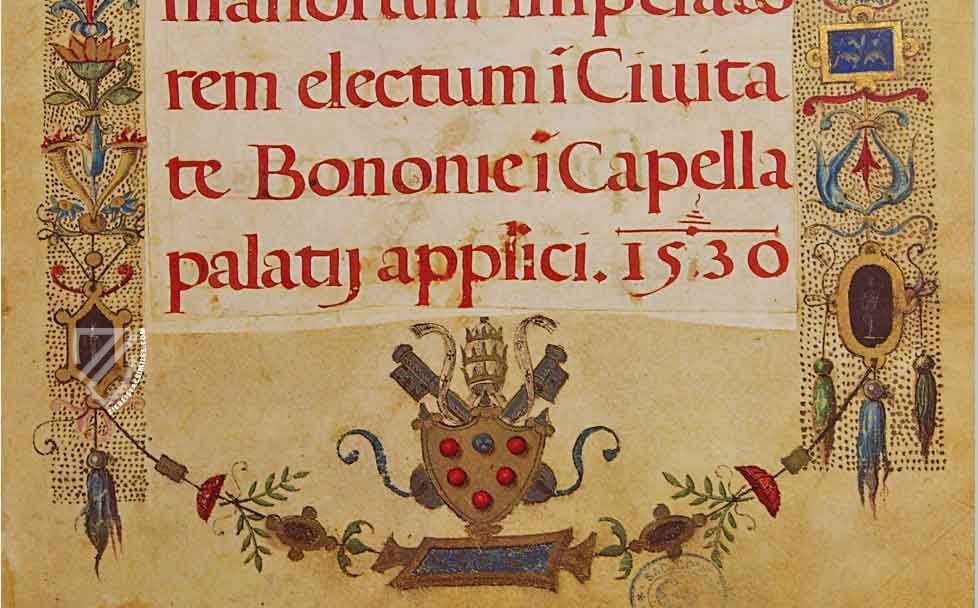 manorum imperato
rem electum ĩ Ciuita
te Bononie ĩ Capella
palatij applici. 1530
ZIEREISFACSIMILES.COM